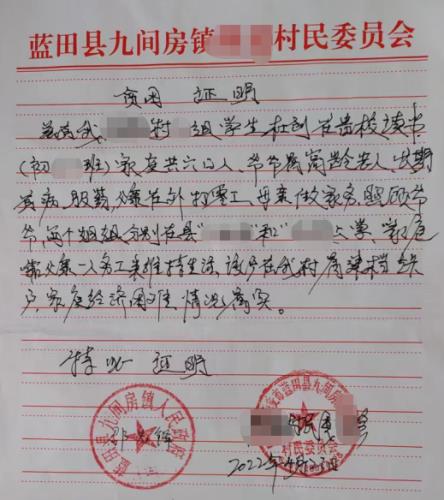 蓝田县九间房镇 村民委员会
贫困证明
兹有我 村 组学生杜 在贵校读书
(初 班)家庭共六口人、爷爷属高龄老人、长期
有病、服药、爆在外打零工、母亲做家务、照顾爷
爷,两个姐姐分别在县“ ”和“ 上学、家庭
靠父亲一人务工来维持生活、该户在我村属建档
户、家庭经济困难、情况属实。
特此证明
蓝田县九间房镇人民政府
西安市蓝田县九间房镇
村民委员会
2022年4月